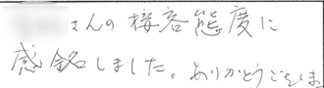 さんの接客態度に
感銘しました。ありがとうございま